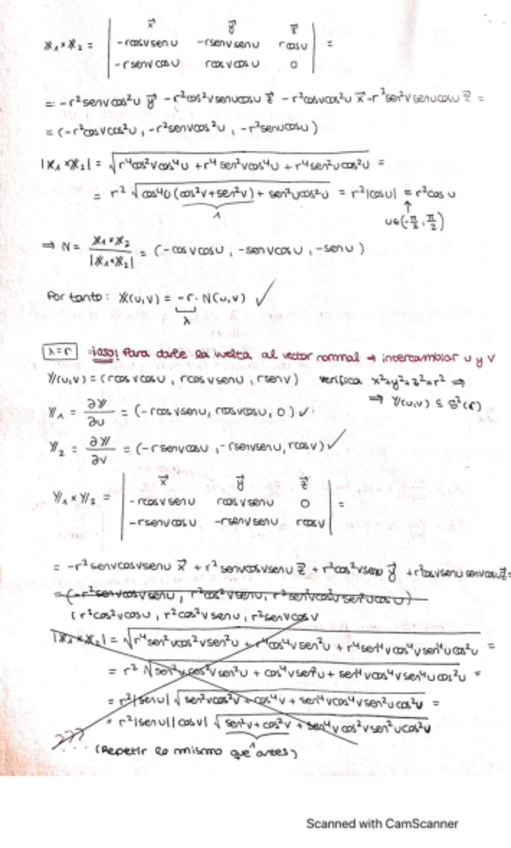 x⃗ y⃗ z⃗
X₁×X₂ = | -rcosvsenu -rsenvsenu rcosu | =
| -rsenvcosu rcosvcosu 0 |
= -r²senvcos²u y⃗ -r²cos²vsenucosu z⃗ - r²cosvcos²u x⃗ -r²sen²vsenucosu z⃗ =
= (-r²cosvcos²u, -r²senvcos²u, -r²senucosu)
|X₁×X₂| = √(r⁴cos²vcos⁴u + r⁴sen²vcos⁴u + r⁴sen²ucos²u) =
= r² √(cos⁴u(cos²v+sen²v) + sen²ucos²u) = r²|cosu| = r²cosu
1 ↑
u∈(-π/2, π/2)
⇒ N = X₁×X₂ / |X₁×X₂| = (-cosvcosu, -senvcosu, -senu)
Por tanto: X(u,v) = -r · N(u,v) ✓
λ
λ=r ¡aso! Para darle la vuelta al vector normal → intercambiar u y v
Y(u,v) = (rcosvcosu, rcosvsenu, rsenv) verifica x²+y²+z²=r² ⇒
⇒ Y(u,v) ⊆ S²(r)
Y₁ = ∂Y/∂u = (-rcosvsenu, rcosvcosu, 0) ✓
Y₂ = ∂Y/∂v = (-rsenvcosu, -rsenvsenu, rcosv) ✓
x⃗ y⃗ z⃗
Y₁×Y₂ = | -rcosvsenu rcosvsenu 0 | =
| -rsenvcosu -rsenvsenu rcosv |
= -r²senvcosvsenu x⃗ + r²senvcosvsenu z⃗ + r²cos²vsenu y⃗ + r²cosvsenu senvcosu z⃗ =
(r²cos²vcosu, r²cos²vsenu, r²senvcosv
|X₁×X₂| = √(r⁴sen²vcos²vsen²u + r⁴cos⁴vsen²u + r⁴sen⁴vcos⁴vsen⁴ucos²u) =
= r² √(sen²vcos²vsen²u + cos⁴vsen²u + sen⁴vcos⁴vsen⁴ucos²u) =
= r²|senu| √(sen²vcos²v + cos⁴v + sen⁴vcos⁴vsen²ucos²u) =
= r²|senu||cosv| √(sen²v+cos²v + sen⁴vcos²vsen²ucos²u)
1
??? (Repetir lo mismo que antes)
Scanned with CamScanner